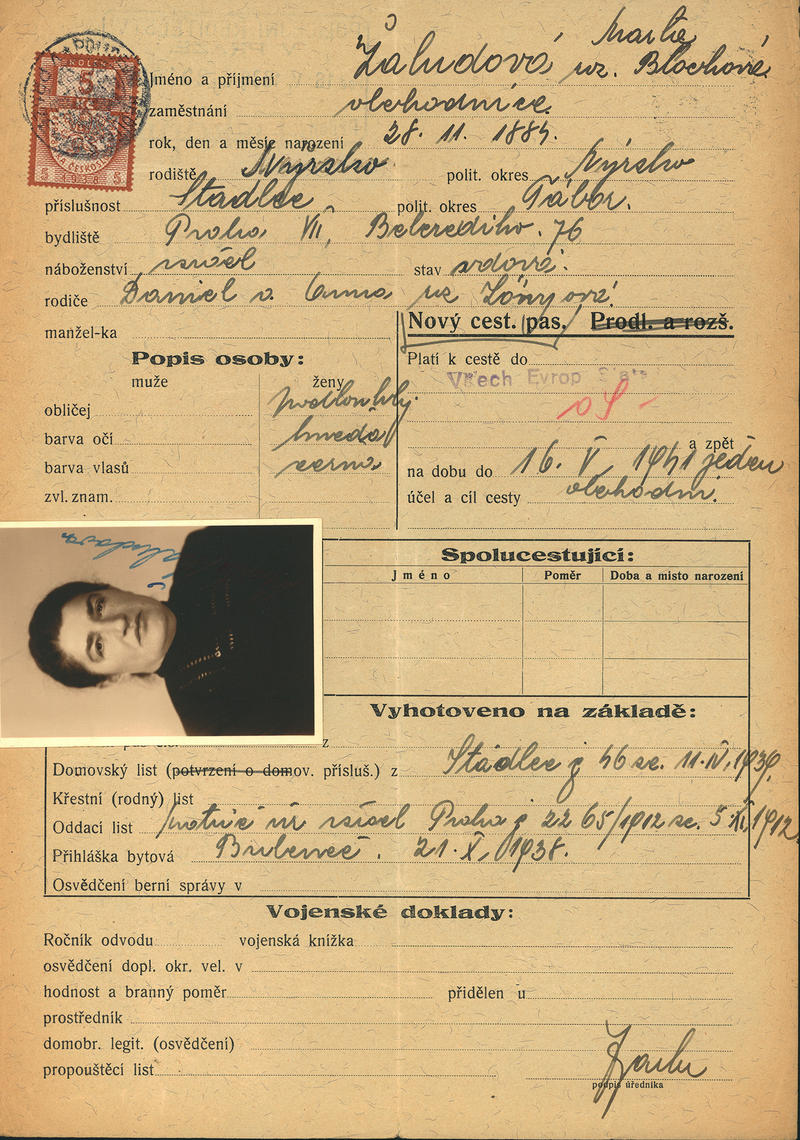 Marta
Jméno a příjmení Žaludová roz. Blochová
zaměstnání obchodnice
rok, den a měsíc narození 28. 11. 1884.
rodiště Nýrsko polit. okres Nýrsko
příslušnost Stádlec polit. okres Tábor.
bydliště Praha VII, Belcrediho. 76
náboženství israel stav vdova.
rodiče Daniel a Anna roz
manžel-ka
Nový cest. pas. Prodl. a rozš.
Popis osoby:
muže ženy
Platí k cestě do
Všech Evrop Stát
obličej podlouhlý
barva očí hnědá
a zpět
barva vlasů černá
na dobu do 16. V. 1941 jeden
zvl. znam.
účel a cíl cesty obchodní.
Žaludová
Spolucestující:
Jméno Poměr Doba a místo narození
Vyhotoveno na základě:
z
Domovský list (potvrzení o domov. přísluš.) z Stádlec j 46 ze. 11. IV. 1939.
Křestní (rodný) list
Oddací list matric úř israel Praha j 2265/1912 ze. 5. XI. 1912
Přihláška bytová Bubeneč. 21. X. 1938.
Osvědčení berní správy v
Vojenské doklady:
Ročník odvodu vojenská knížka
osvědčení dopl. okr. vel. v
hodnost a branný poměr přidělen u
prostředník
domobr. legit. (osvědčení)
propouštěcí list
podpis úředníka